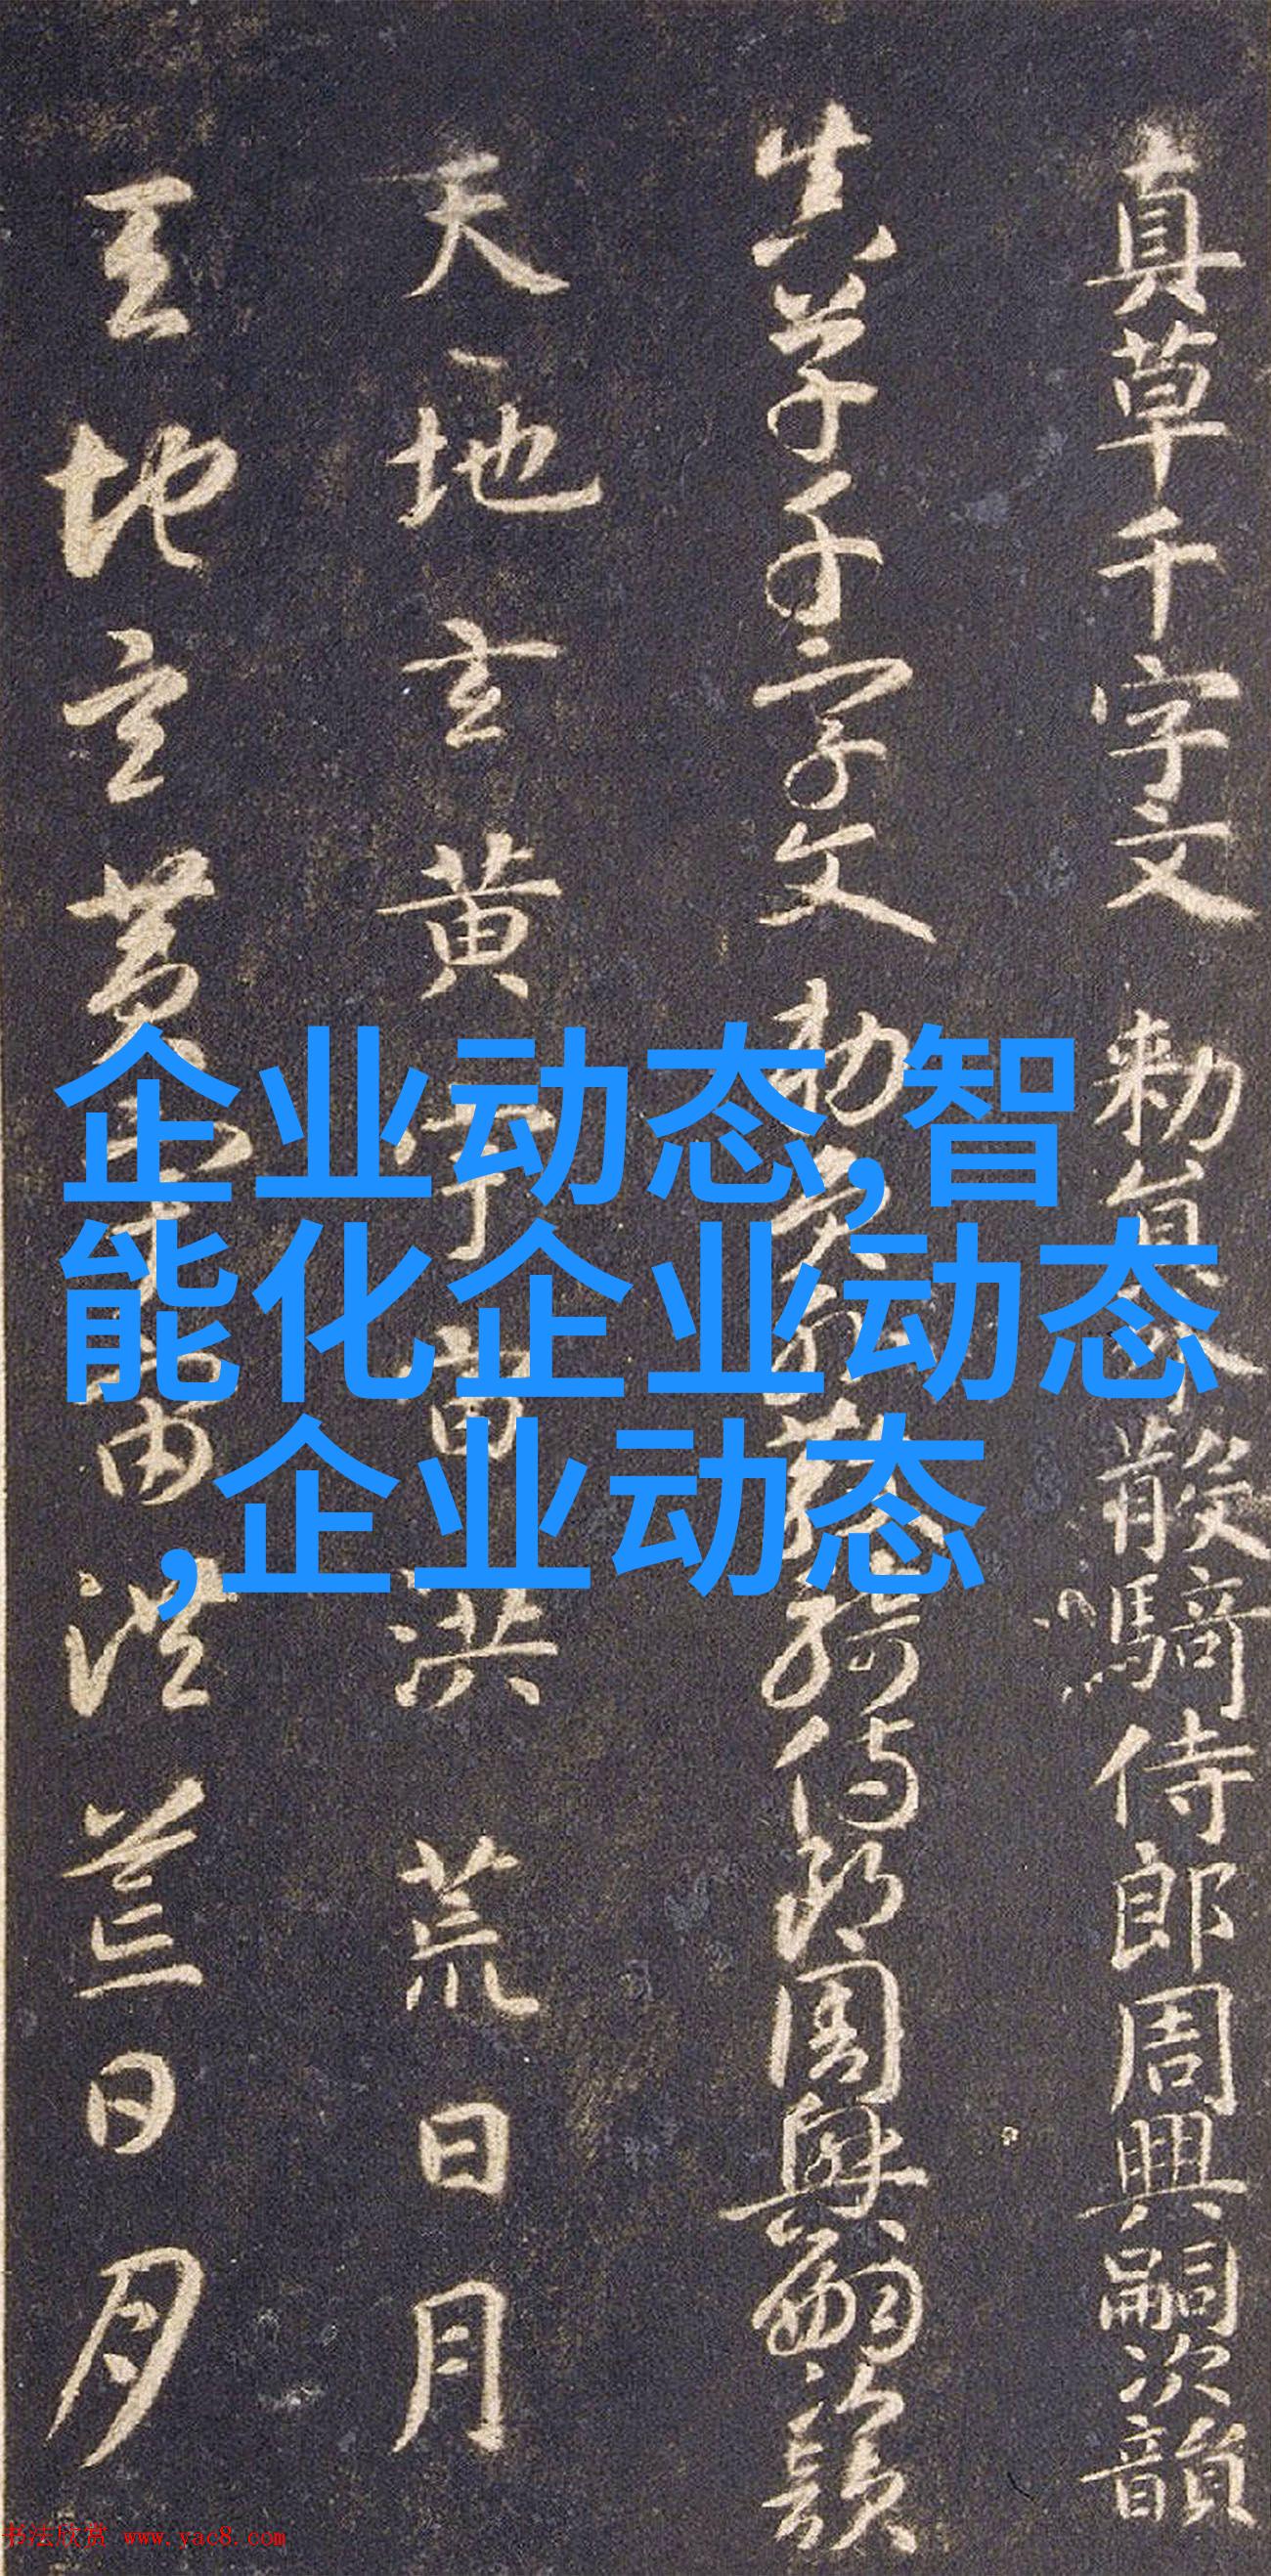 真草千字文 勑員外散騎侍郎周興嗣次韻
真草千字文 勑員外散騎侍郎周興嗣次韻
天地玄黄宇宙洪荒日月
天地玄黄宇宙洪荒日月
企业动态,智
能化企业动态
,企业动态
书法欣赏 www.yac8.com